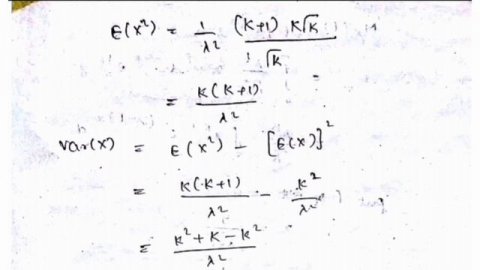 E(x²) = 1/λ² (K+1) K√K / √K
= K(K+1)/λ²
Var(x) = E(x²) - [E(x)}²
= K(K+1)/λ² - K²/λ²
= K²+K-K²/λ²